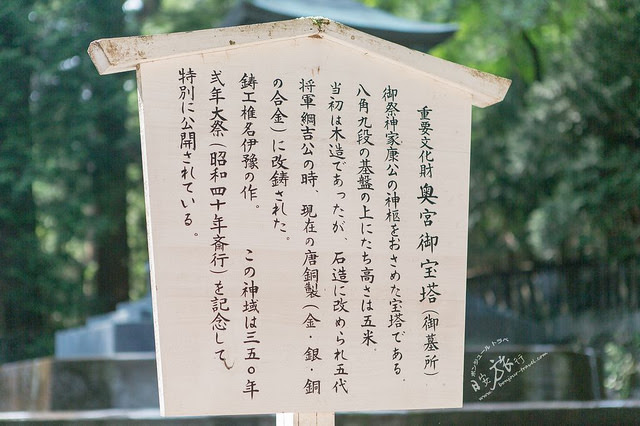 重要文化財 奥宮御宝塔(御墓所)
御祭神家康公の神柩をおさめた宝塔である.
八角九段の基盤の上にたち高さは五米.
当初は木造であったが、石造に改められ五代
将軍綱吉公の時、現在の唐銅製(金・銀・銅
の合金)に改鋳された。
鋳工椎名伊豫の作。 この神域は三五〇年
弐年大祭(昭和四十年斎行)を記念して
特別に公開されている。
ボンジュールトラベ
日安旅行